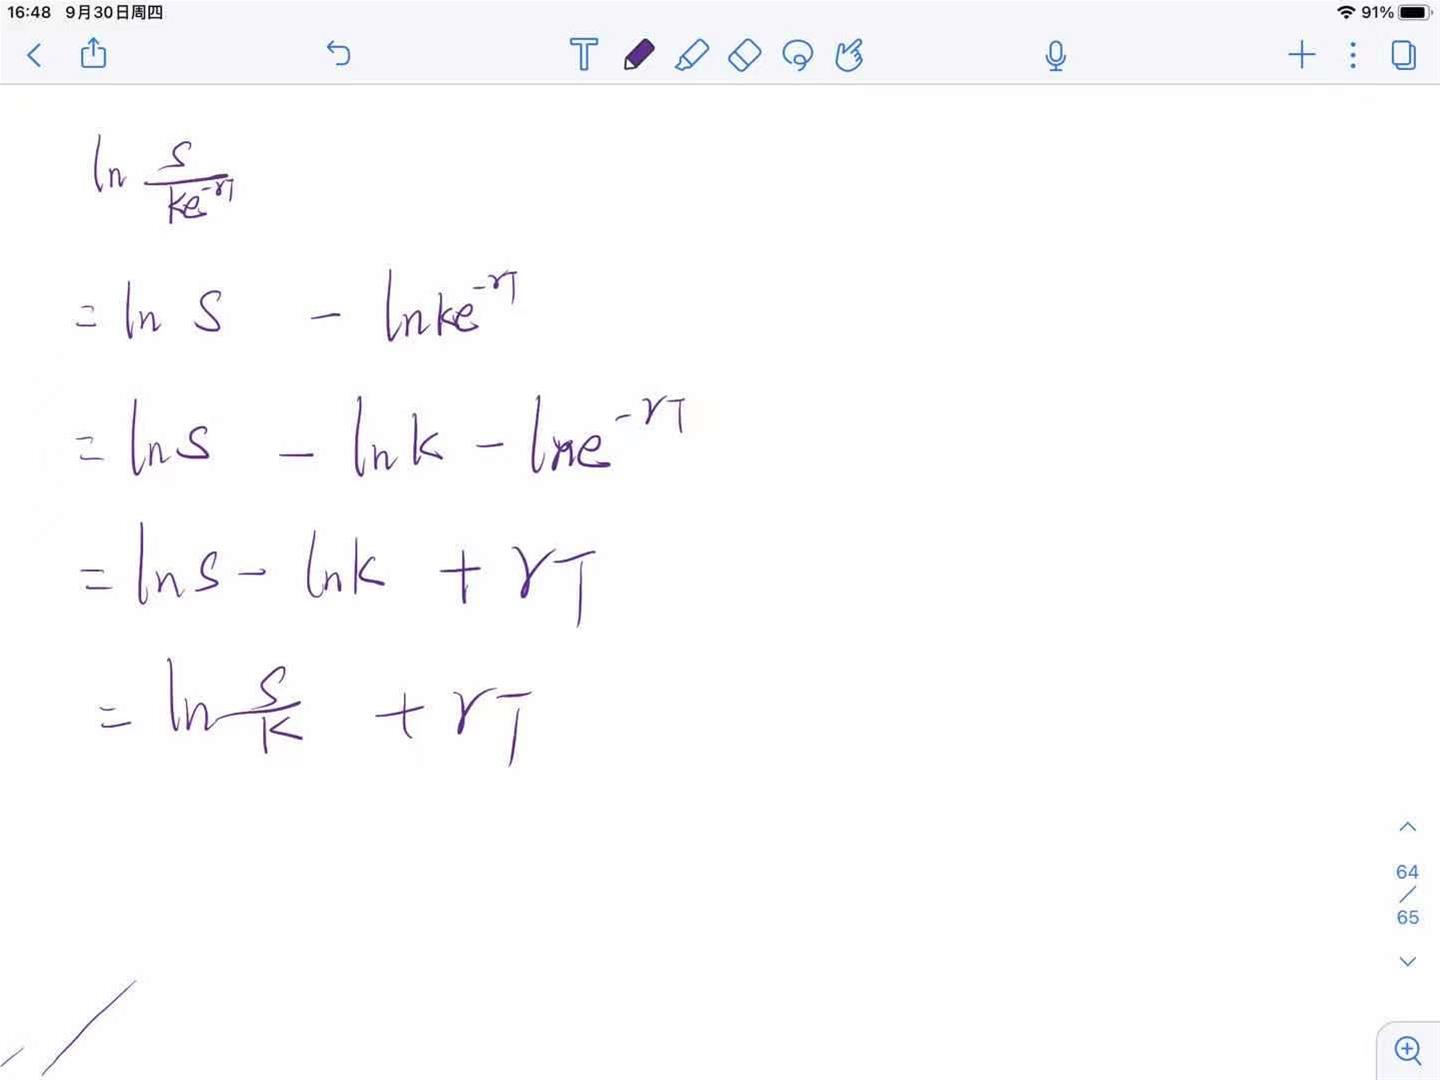 16:48 9月30日周四 91%
T
ln s/ke^-rT
= ln S - ln ke^-rT
= ln S - ln k - ln e^-rT
= ln S - ln k + rT
= ln S/K + rT
64
/
65